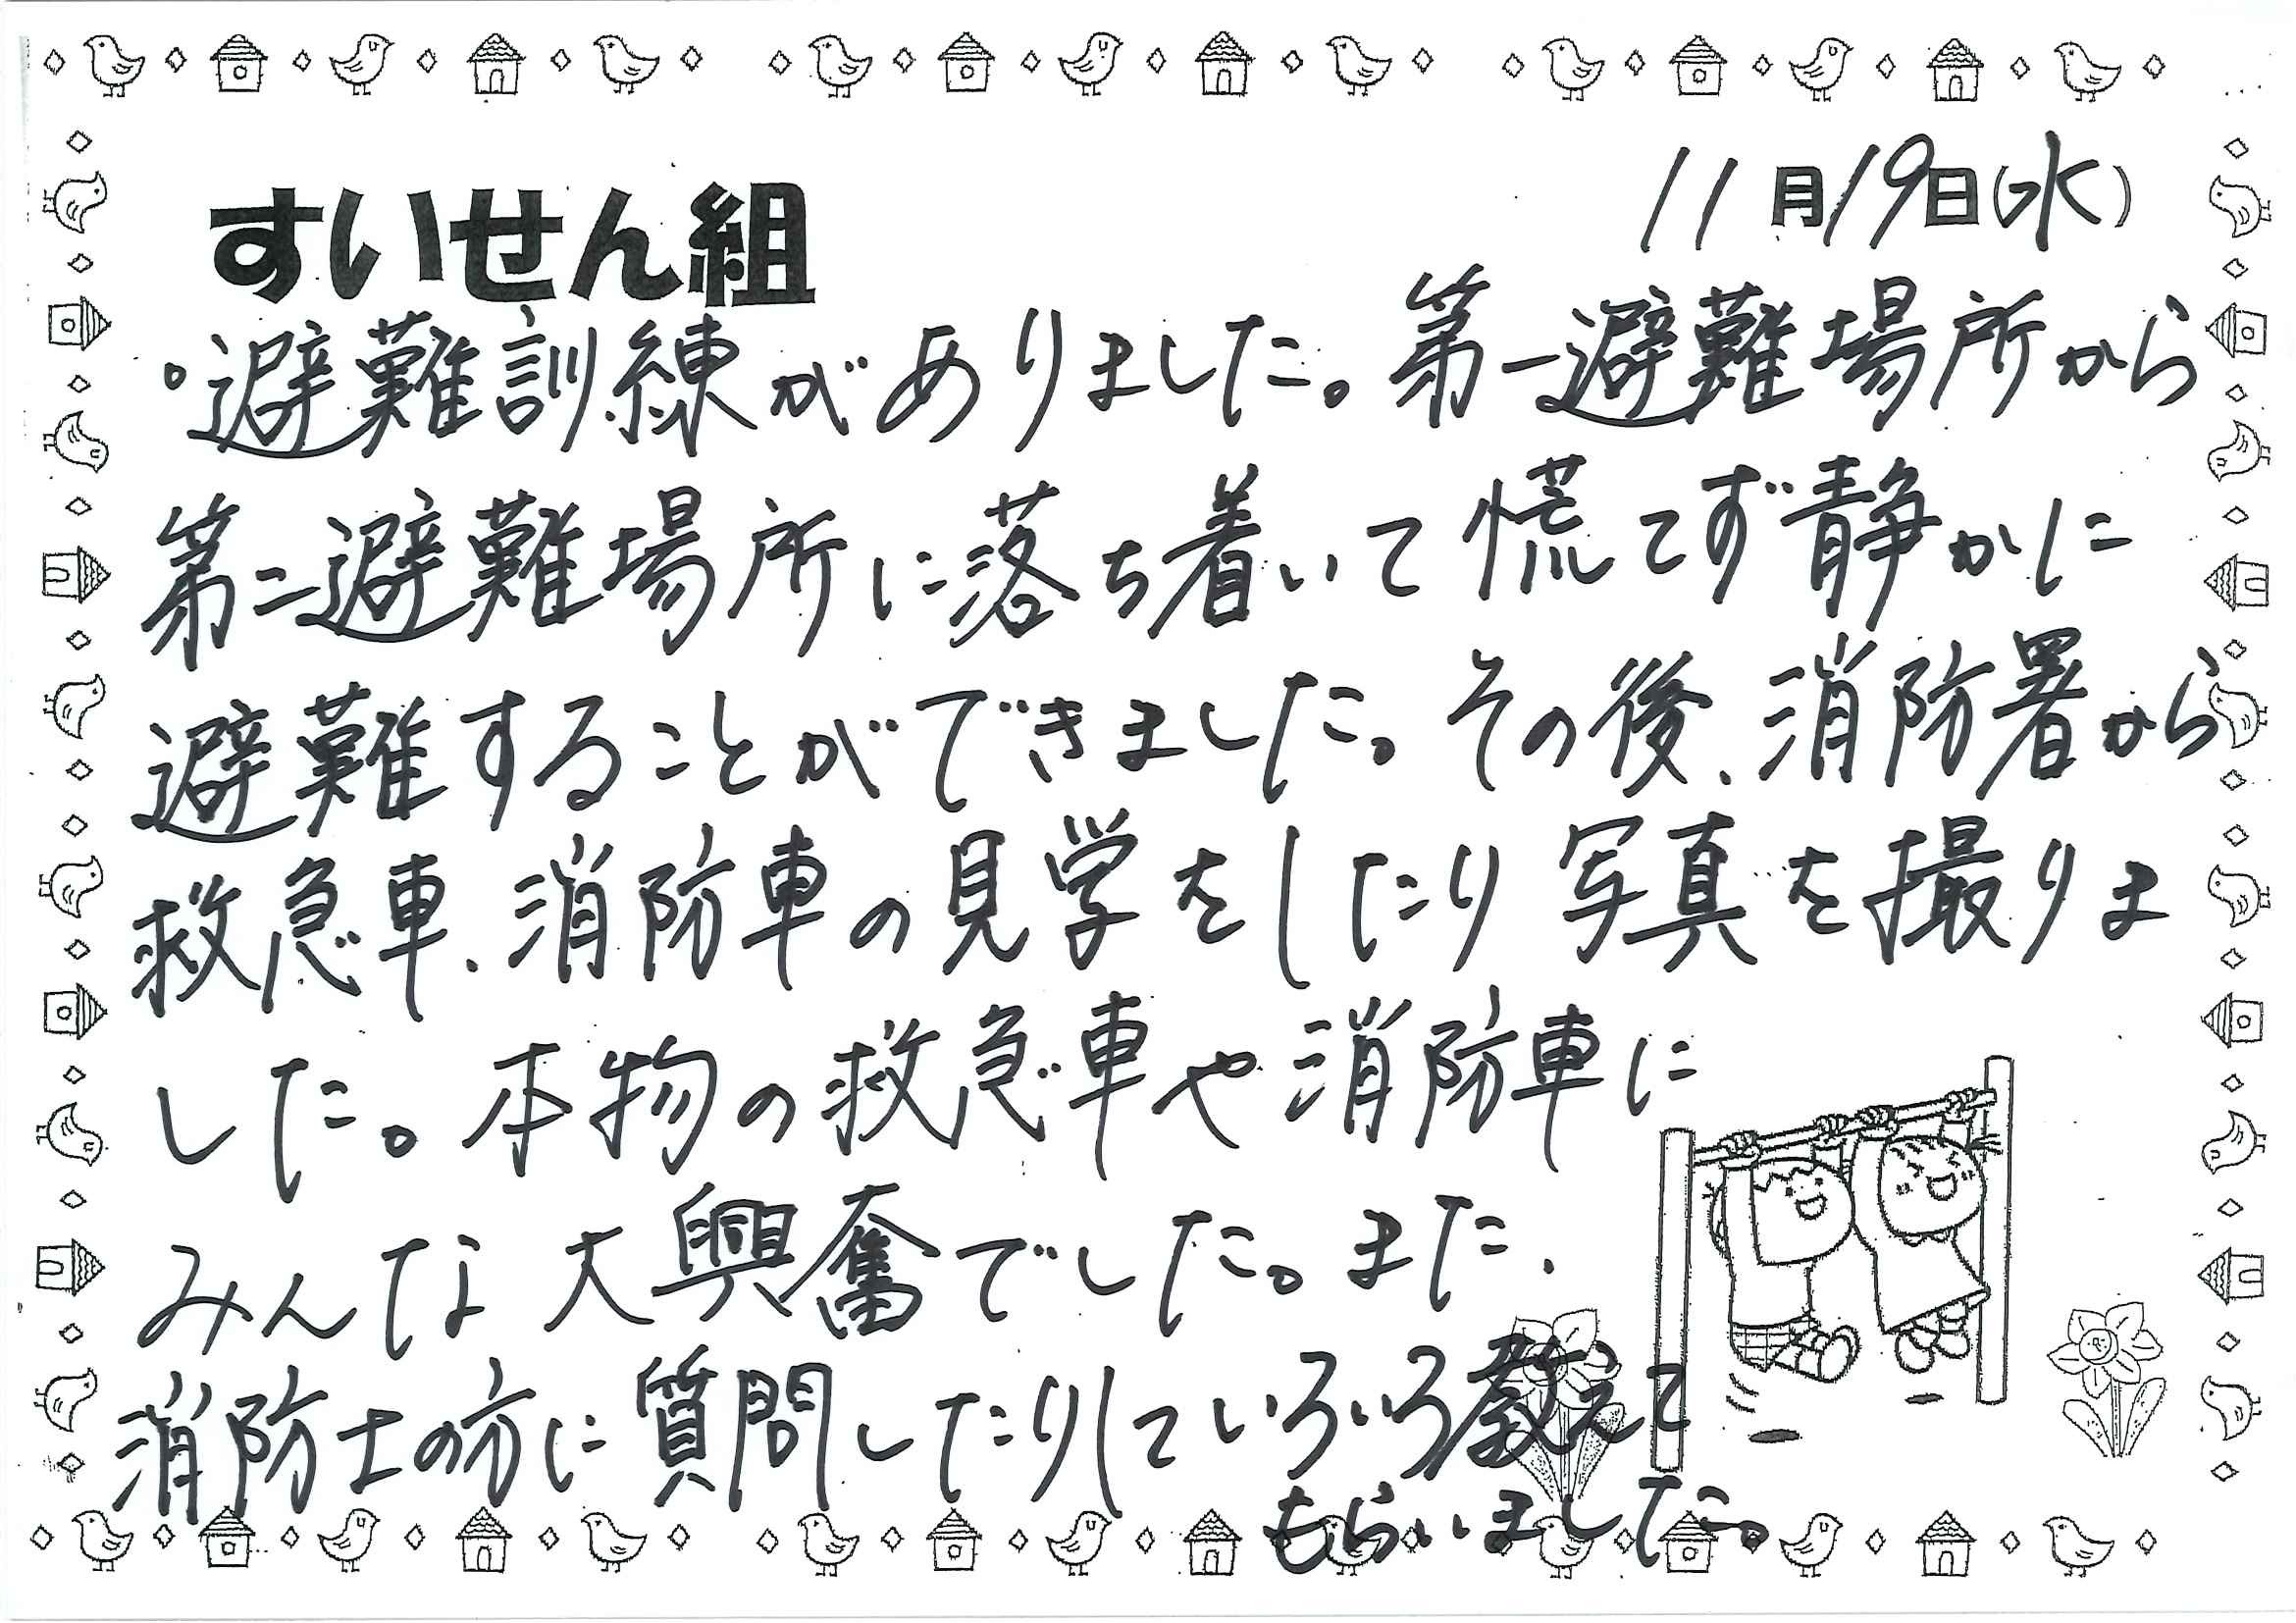 すいせん組
11月19日(水)
。避難訓練がありました。第一避難場所から
第二避難場所に落ち着いて慌てず静かに
避難することができました。その後、消防署から
救急車、消防車の見学をしたり写真を撮りま
した。本物の救急車や消防車に
みんな大興奮でした。また、
消防士の方に質問したりしていろいろ教えて
もらいました。